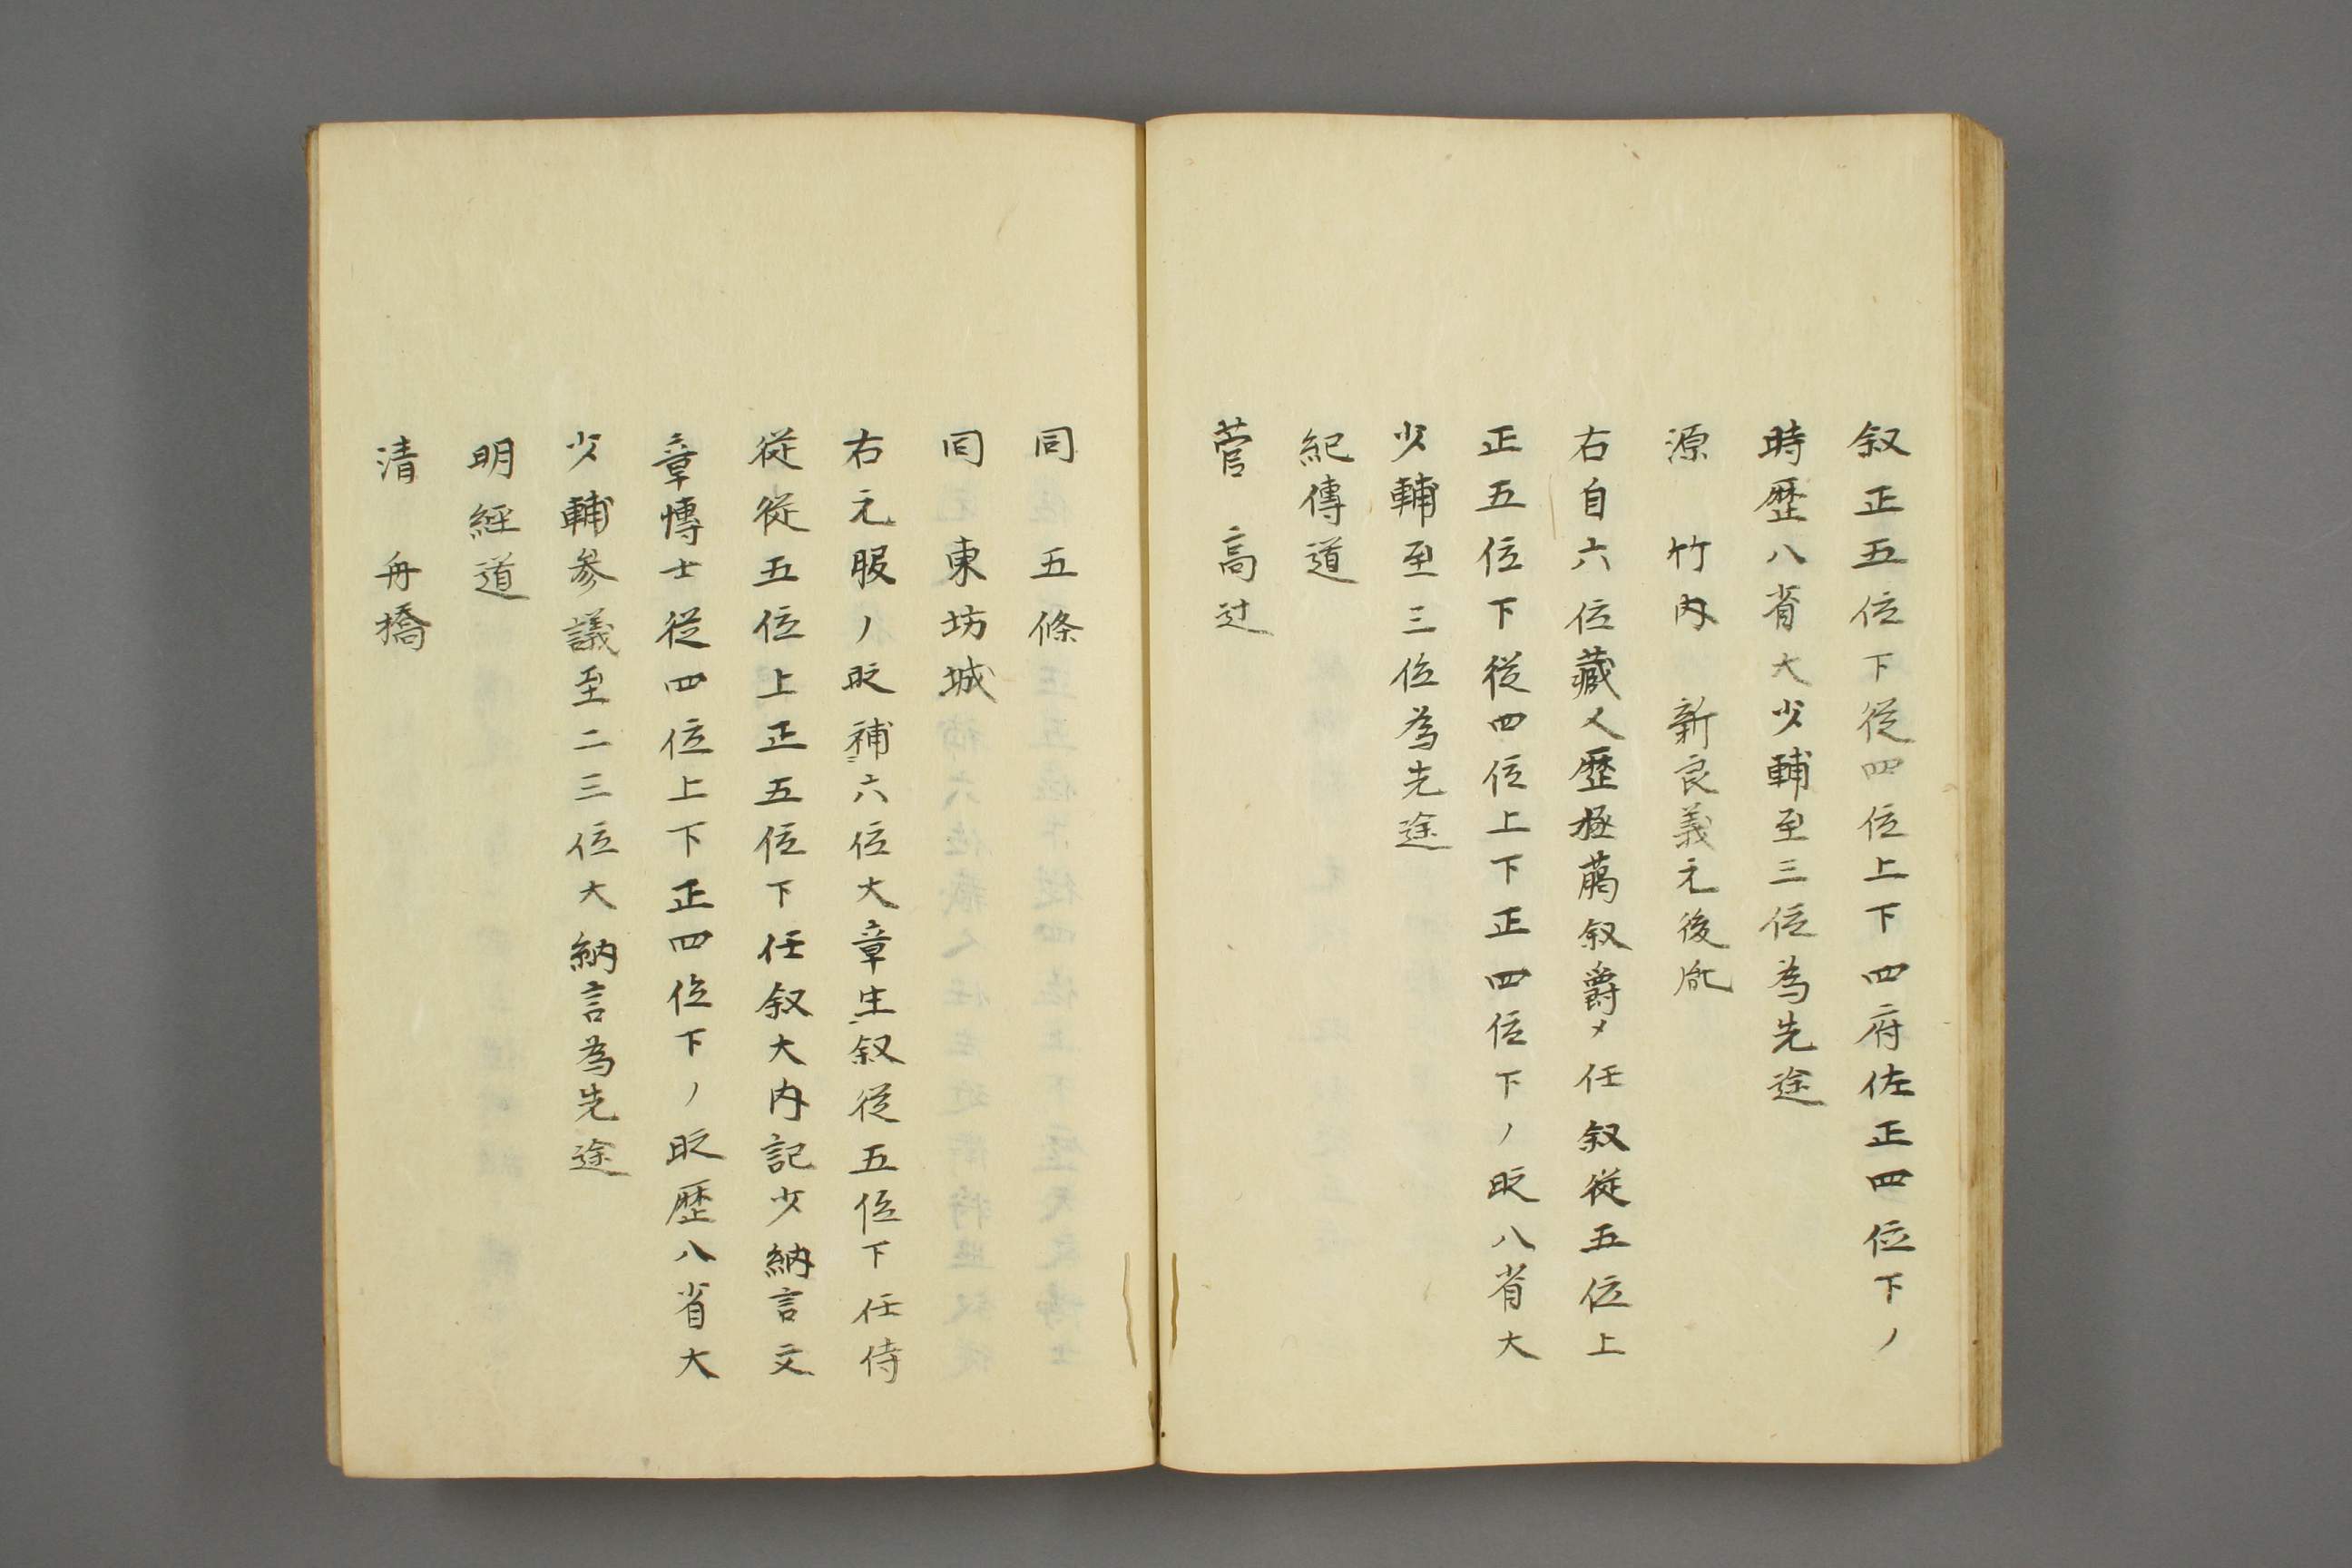 叙正五位下従四位上下四府佐正四位下ノ
時歴八省大少輔至三位為先途
源　竹内　新良義元後胤
右自六位蔵人歴極﨟叙爵〆任叙従五位上
正五位下従四位上下正四位下ノ時八省大
少輔至三位為先途
紀傳道
菅　高辻
同　五條
同　東坊城
右元服ノ時補六位大章生叙従五位下任侍
従従五位上正五位下任叙大内記少納言文
章博士従四位上下正四位下ノ時歴八省大
少輔参議至二三位大納言為先途
明經道
清　舟橋